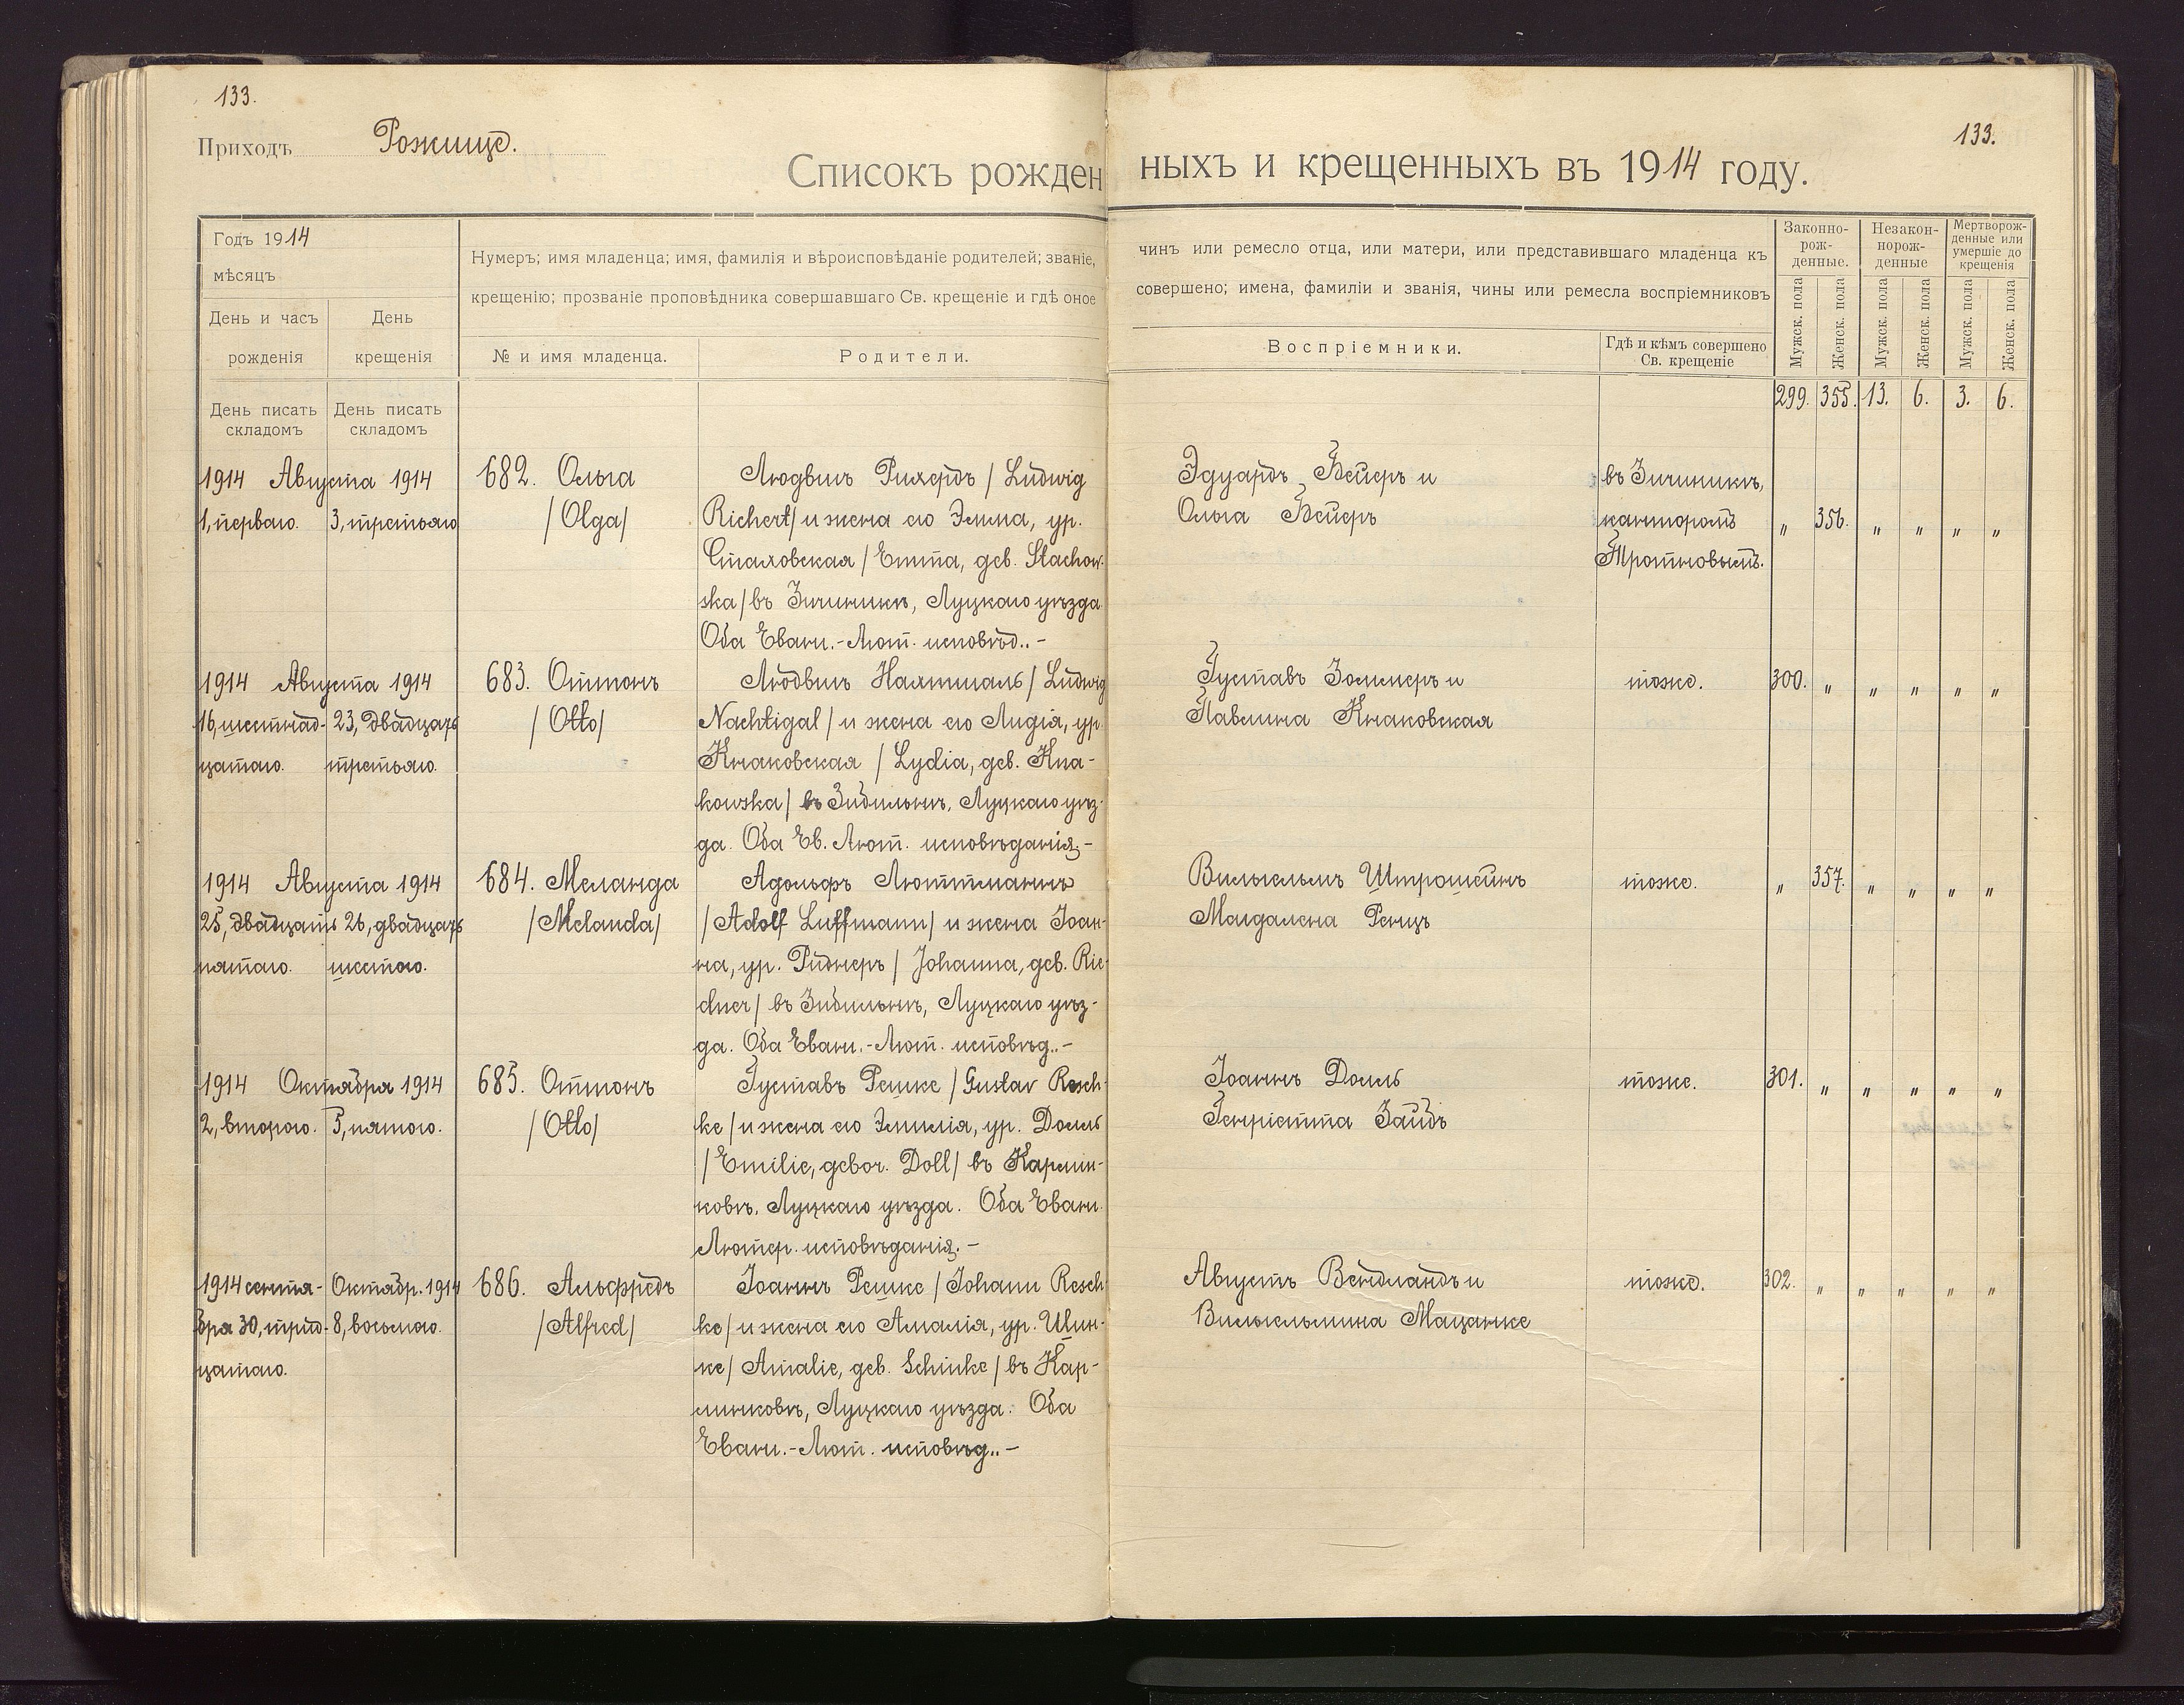 133.
Приходъ Рожище.
133.
Списокъ рожден ныхъ и крещенныхъ въ 1914 году.
Годъ 1914
мѣсяцъ
День и часъ
рожденія
День
крещенія
Нумеръ; имя младенца; имя, фамилія и вѣроисповѣданіе родителей; званіе,
крещенію; прозваніе проповѣдника совершавшаго Св. крещеніе и гдѣ оное
№ и имя младенца.
Родители.
чинъ или ремесло отца, или матери, или представившаго младенца къ
совершено; имена, фамиліи и званія, чины или ремесла воспріемниковъ
Воспріемники.
Гдѣ и кѣмъ совершено
Св. крещеніе
Законно-
рож-
денные.
Незакон-
норож-
денные
Мертворож-
денные или
умершіе до
крещенія
Мужск. пола
Женск. пола
Мужск. пола
Женск. пола
Мужск. пола
Женск. пола
299. 355. 13. 6. 3. 6.
День писать
складомъ
День писать
складомъ
1914 Августа 1914
1, перваго. 3, третьяго
682. Ольга
/Olga/
Людвигъ Рихердъ / Ludwig
Richert/ и жена его Эмма, ур.
Стаховская / Emma, geb. Stachow-
ska / въ Зичиникъ, Луцкаго уѣзда
Оба Еванг.-Лют. исповѣд..-
Эдуардъ Бейеръ и
Ольга Бейеръ
въ Зичиникъ,
канторомъ
„ 356. „ „ „ „
1914 Августа 1914
16, шестнад-
цатаго.
23, двадцать
третьяго.
683. Оттонъ
/Otto/
Людвигъ Нахтигаль / Ludwig
Nachtigal / и жена его Лидія, ур.
Кнаковская / Lydia, geb. Kna-
kowska / въ Зибильнѣ, Луцкаго уѣз-
да. Оба Ев. Лют. исповѣданія.-
Густавъ Зоммеръ и
Павлина Кнаковская
тоже.
300. „ „ „ „ „
1914 Августа 1914
25, двадцать
пятаго.
26, двадцать
шестого.
684. Меланда
/Melanda/
Адольфъ Люттманнъ
/Adolf Luttmann/ и жена Іоан-
на, ур. Риднеръ / Johanna, geb. Rie-
dner / въ Зибильнѣ, Луцкаго уѣз-
да. Оба Еванг.-Лют. исповѣд..-
Вильгельмъ Штрошейнъ
Магдалена Ренцъ
тоже.
„ 357. „ „ „ „
1914 Октября 1914
2, второго. 5, пятого.
685. Оттонъ
/Otto/
Густавъ Решке / Gustav Resch-
ke / и жена его Эмилія, ур. Долль
/Emilie, gebor. Doll/ въ Кармин-
ковѣ, Луцкаго уѣзда. Оба Еванг.
Лютер. исповѣданія.-
Іоаннъ Долль
Генріетта Зайдъ
тоже.
301. „ „ „ „ „
1914 сентя-
бря 30, трид-
цатаго.
Октябр. 1914
8, восьмого.
686. Альфредъ
/Alfred/
Іоаннъ Решке / Johann Resch-
ke / и жена его Амалія, ур. Шин-
ке / Amalie, geb. Schinke / въ Кар-
минковѣ, Луцкаго уѣзда. Оба
Еванг.-Лют. исповѣд..-
Августъ Вендландъ и
Вильгельмина Мацанке
тоже.
302. „ „ „ „ „